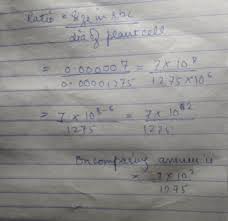 Ratio = Size in RBC
dia of plant cell
= 0.000007 = 7 × 10⁸
0.00001275 1275 × 10⁶
= 7 × 10⁸⁻⁶ = 7 × 10²
1275 1275
On comparing answer is
= 7 × 10²
1275